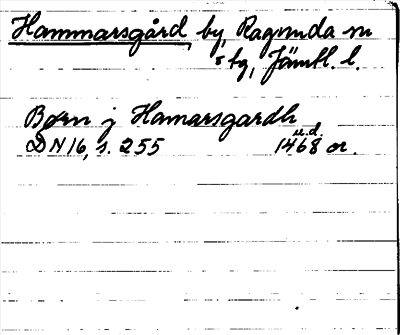 Hammarsgård by, Ragunda sn
s tg, Jämtl. l.
Børn j Hamarsgardh
u.d.
DN 16, s. 255 1468 or.